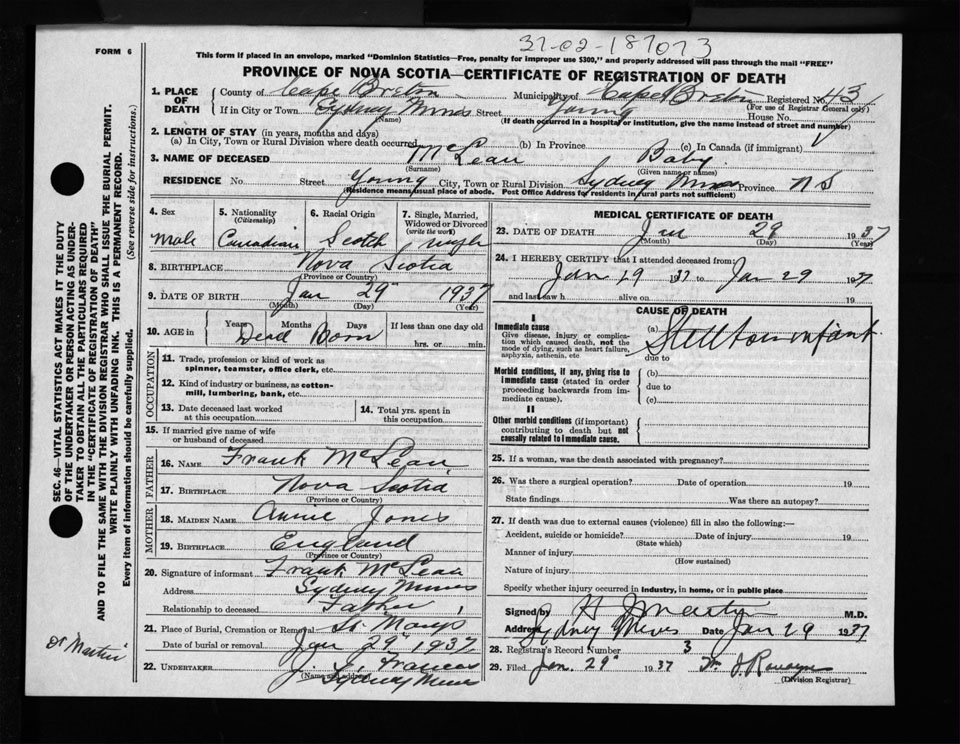 37-02-187073
FORM 6
This form if placed in an envelope, marked "Dominion Statistics—Free, penalty for improper use $300," and properly addressed will pass through the mail "FREE"
PROVINCE OF NOVA SCOTIA—CERTIFICATE OF REGISTRATION OF DEATH
1. PLACE OF DEATH
County of Cape Breton Municipality of Cape Breton Registered No.
(For use of Registrar General only)
If in City or Town Sydney Mines Street Young House No.
(Name) (If death occurred in a hospital or institution, give the name instead of street and number)
2. LENGTH OF STAY (in years, months and days)
(a) In City, Town or Rural Division where death occurred (b) In Province (c) In Canada (if immigrant)
3. NAME OF DECEASED McLean Baby
(Surname) (Given name or names)
RESIDENCE No. Street Young City, Town or Rural Division Sydney Mines Province N S
(Residence means usual place of abode. Post Office Address for residents in rural parts not sufficient)
4. Sex
male
5. Nationality
(Citizenship)
Canadian
6. Racial Origin
Scotch
7. Single, Married, Widowed or Divorced
(write the word)
single
8. BIRTHPLACE Nova Scotia
(Province or Country)
9. DATE OF BIRTH Jan 29 1937
(Month) (Day) (Year)
10. AGE in Years Months Days If less than one day old
Dead Born hrs. or min.
OCCUPATION
11. Trade, profession or kind of work as spinner, teamster, office clerk, etc.
12. Kind of industry or business, as cotton-mill, lumbering, bank, etc.
13. Date deceased last worked at this occupation
14. Total yrs. spent in this occupation
15. If married give name of wife or husband of deceased
FATHER
16. NAME Frank McLean
17. BIRTHPLACE Nova Scotia
(Province or Country)
MOTHER
18. MAIDEN NAME Annie Jones
19. BIRTHPLACE England
(Province or Country)
20. Signature of informant Frank McLean
Address Sydney Mines
Relationship to deceased Father
21. Place of Burial, Cremation or Removal St. Marys
Date of burial or removal Jan 29 1937
22. UNDERTAKER J. Francis
(Name and address) Sydney Mines
MEDICAL CERTIFICATE OF DEATH
23. DATE OF DEATH Jan 29 1937
(Month) (Day) (Year)
24. I HEREBY CERTIFY that I attended deceased from:
Jan 29 1937 to Jan 29 1937
and last saw h alive on 19
CAUSE OF DEATH
I
Immediate cause
Give disease, injury or complication which caused death, not the mode of dying, such as heart failure, asphyxia, asthenia, etc
(a) Stillborn infant
due to
Morbid conditions, if any, giving rise to immediate cause (stated in order proceeding backwards from immediate cause).
(b)
due to
(c)
II
Other morbid conditions (if important) contributing to death but not causally related to immediate cause.
25. If a woman, was the death associated with pregnancy?
26. Was there a surgical operation? Date of operation 19
State findings Was there an autopsy?
27. If death was due to external causes (violence) fill in also the following:—
Accident, suicide or homicide? Date of injury 19
(State which)
Manner of injury
(How sustained)
Nature of injury
Specify whether injury occurred in industry, in home, or in public place
Signed by H Martin M.D.
Address Sydney Mines Date Jan 29 1937
28. Registrar's Record Number 3
29. Filed Jan. 29 1937
(Division Registrar)
SEC. 46—VITAL STATISTICS ACT MAKES IT THE DUTY
OF THE UNDERTAKER OR PERSON ACTING AS UNDER-
TAKER TO OBTAIN ALL THE PARTICULARS REQUIRED
IN THE "CERTIFICATE OF REGISTRATION OF DEATH"
AND TO FILE THE SAME WITH THE DIVISION REGISTRAR WHO SHALL ISSUE THE BURIAL PERMIT.
WRITE PLAINLY WITH UNFADING INK. THIS IS A PERMANENT RECORD.
Every item of information should be carefully supplied. (See reverse side for instructions.)
Dr Martin